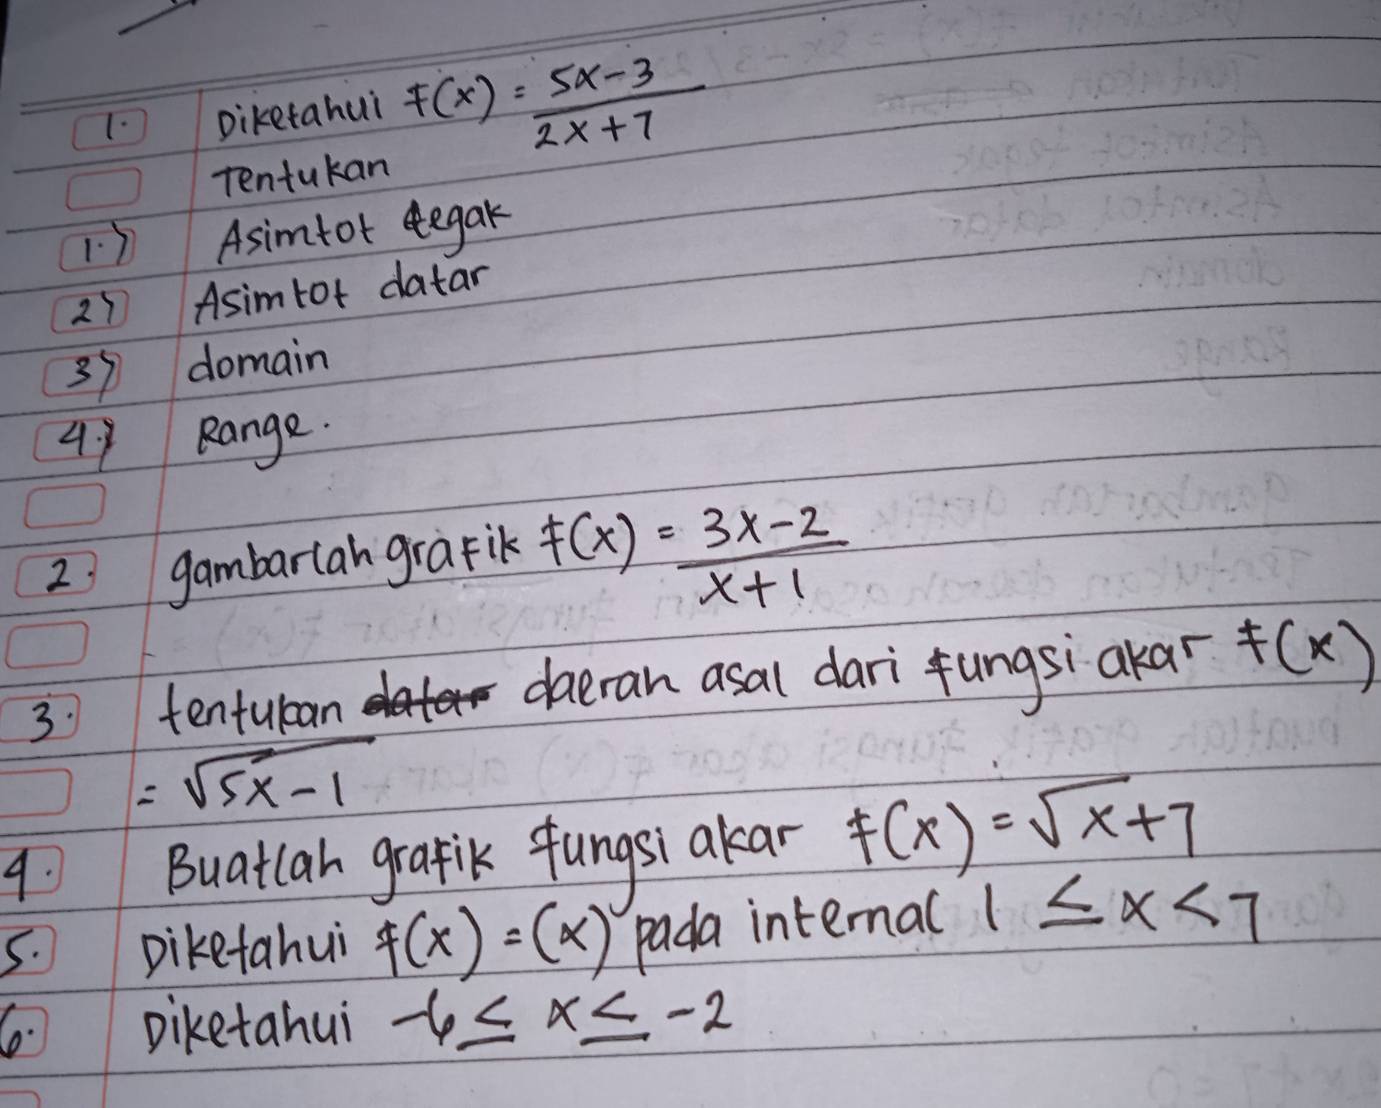 1. Diketahui f(x) = 5x-3 / 2x+7
Tentukan
1.) Asimtot tegak
2) Asimtot datar
3) domain
4.) Range.
2. gambarlah grafik f(x) = 3x-2 / x+1
3. tentukan datar daerah asal dari fungsi akar f(x)
= √5x-1
4. Buatlah grafik fungsi akar f(x) = √x+7
5. Diketahui f(x) = (x) pada internal 1 ≤ x < 7
6. Diketahui -6 ≤ x ≤ -2